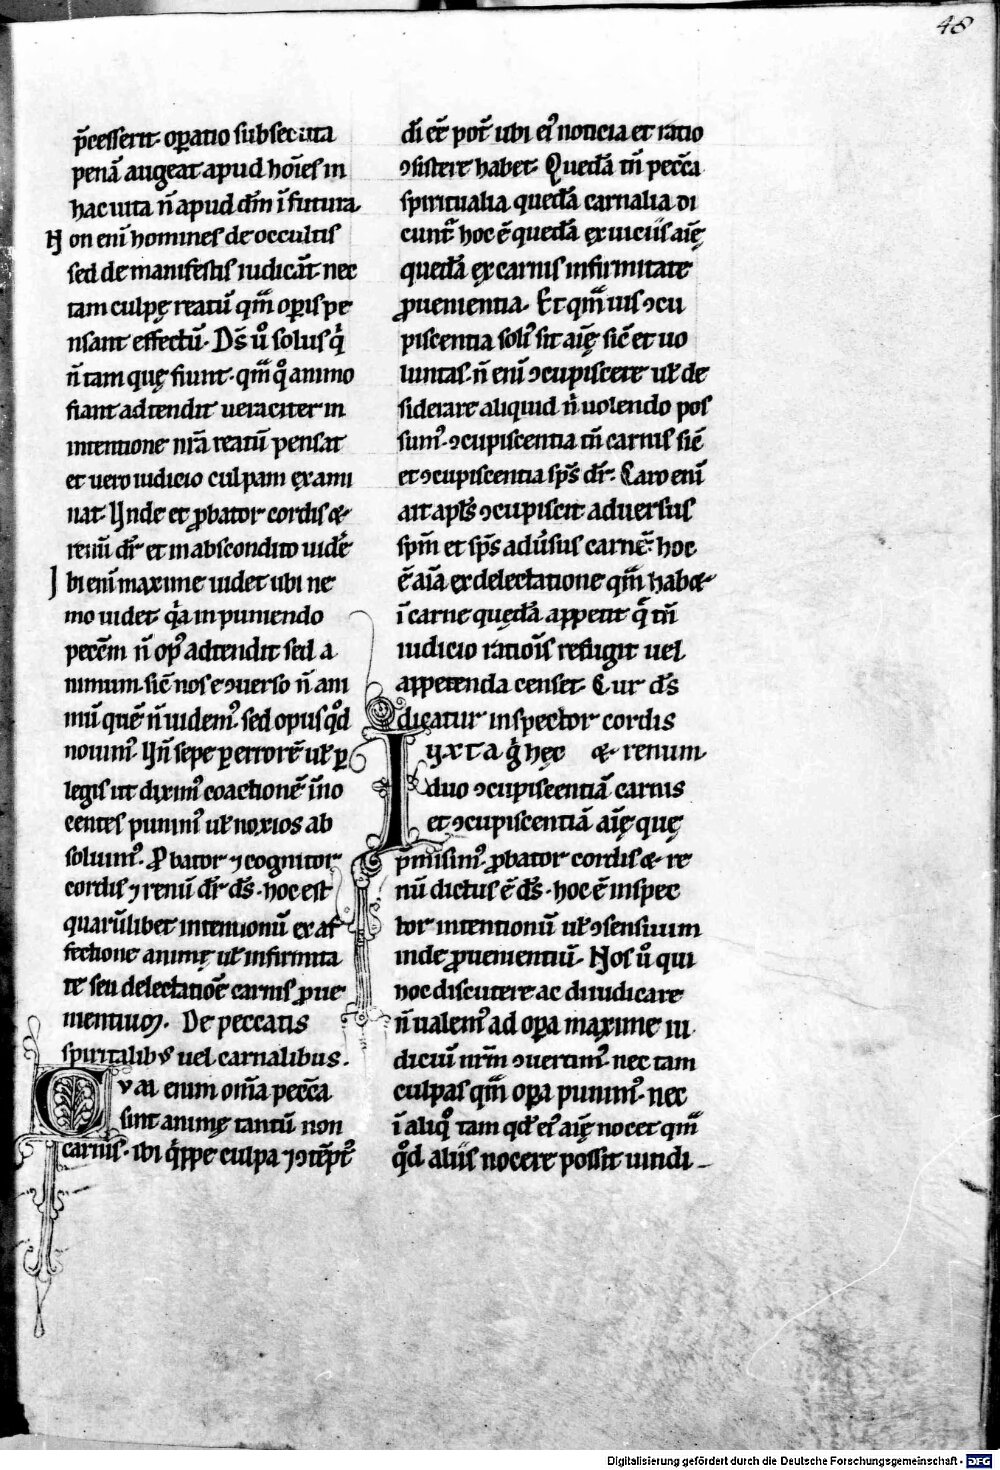 48
p̄cesserit. oꝑatio subsecuta
penā augeat apud hoīes in
hac uita ñ apud dm̄ ī futura.
Non enī homines de occultis
sed de manifestis iudicāt nec
tam culpę reatū qm̄ oꝑis pe
nsant effectū. Ds̄ ů solus qͥ
ñ tam quę fiunt. qm̄ qͦ animo
fiant adtendit ueraciter in
intentione nrā reatū pensat
et uero iudicio culpam exami
nat. Unde et ꝓbator cordis &
renū dr̄ et in abscondito uidēˀ
Ibi enī maxime uidet ubi ne
mo uidet. qͥa in puniendo
peccm̄ ñ opꝰ adtendit sed a
nimum. sic̄ nos e ↄuerso ñ ani
mū quē ñ uidemꝰ. sed opus qͦd
nouimꝰ. Uñ sepe ꝑ errorē uł ꝑ
legis ut diximꝰ coactionē īno
centes punimꝰ uł noxios ab
soluimꝰ. Ꝓbator ⁊ cognitor
cordis ⁊ renū dr̄ ds̄. hoc est
quarūlibet intentionū ex af
fectione animę uł infirmita
te seu delectatiōe carnis ꝓue
nientium. De peccatis
spiritalibꝰ uel carnalibus.
Cvm enim om̄a pecc̄a
sint animę tantū non
carnis. ibi qͥppe culpa ⁊ ↄtēptꝰ
dī ee̅ pot̄ ubi eiꝰ noticia et ratio
ↄsistere habet. Quedā tn̄ pecc̄a
spiritualia quedā carnalia di
cuntˀ. hoc ē quedā ex uiciis aīę
quedā ex carnis infirmitate
ꝓuenientia. Et qm̄uis ↄcu
piscentia soliꝰ sit aīę sic̄ et uo
luntas. ñ enī ↄcupiscere uł de
siderare aliquid nͥ uolendo pos
sumꝰ. ↄcupiscentia tn̄ carnis sic̄
et ↄcupiscentia sps̄ dr̄. Caro enī
ait apłs ↄcupiscit aduersus
spm̄ et sps̄ adu̓sus carnē. hoc
ē aīa ex delectatione qm̄ hab&
ī carne quędā appetit q̄ tn̄
iudicio ratiōis refugit uel
appetenda censet. Cur ds̄
dicatur inspector cordis
Iuxta gͥ hęc & renum
duo ↄcupiscentiā carnis
et ↄcupiscentiā aīę quę
p̄misimꝰ. ꝓbator cordis & re
nū dictus ē ds̄. hoc ē inspec
tor intentionū uł ↄsensuum
inde ꝓuenientiū. Nos ů qui
hoc discutere ac diiudicare
ñ ualemꝰ ad oꝑa maxime iu
diciū nrm̄ ↄuertimꝰ. nec tam
culpas qm̄ oꝑa punimꝰ. nec
ī aliqͦ tam qd̄ eiꝰ aīę nocet qm̄
qͦd aliis nocere possit uindi
Digitalisierung gefördert durch die Deutsche Forschungsgemeinschaft - DFG